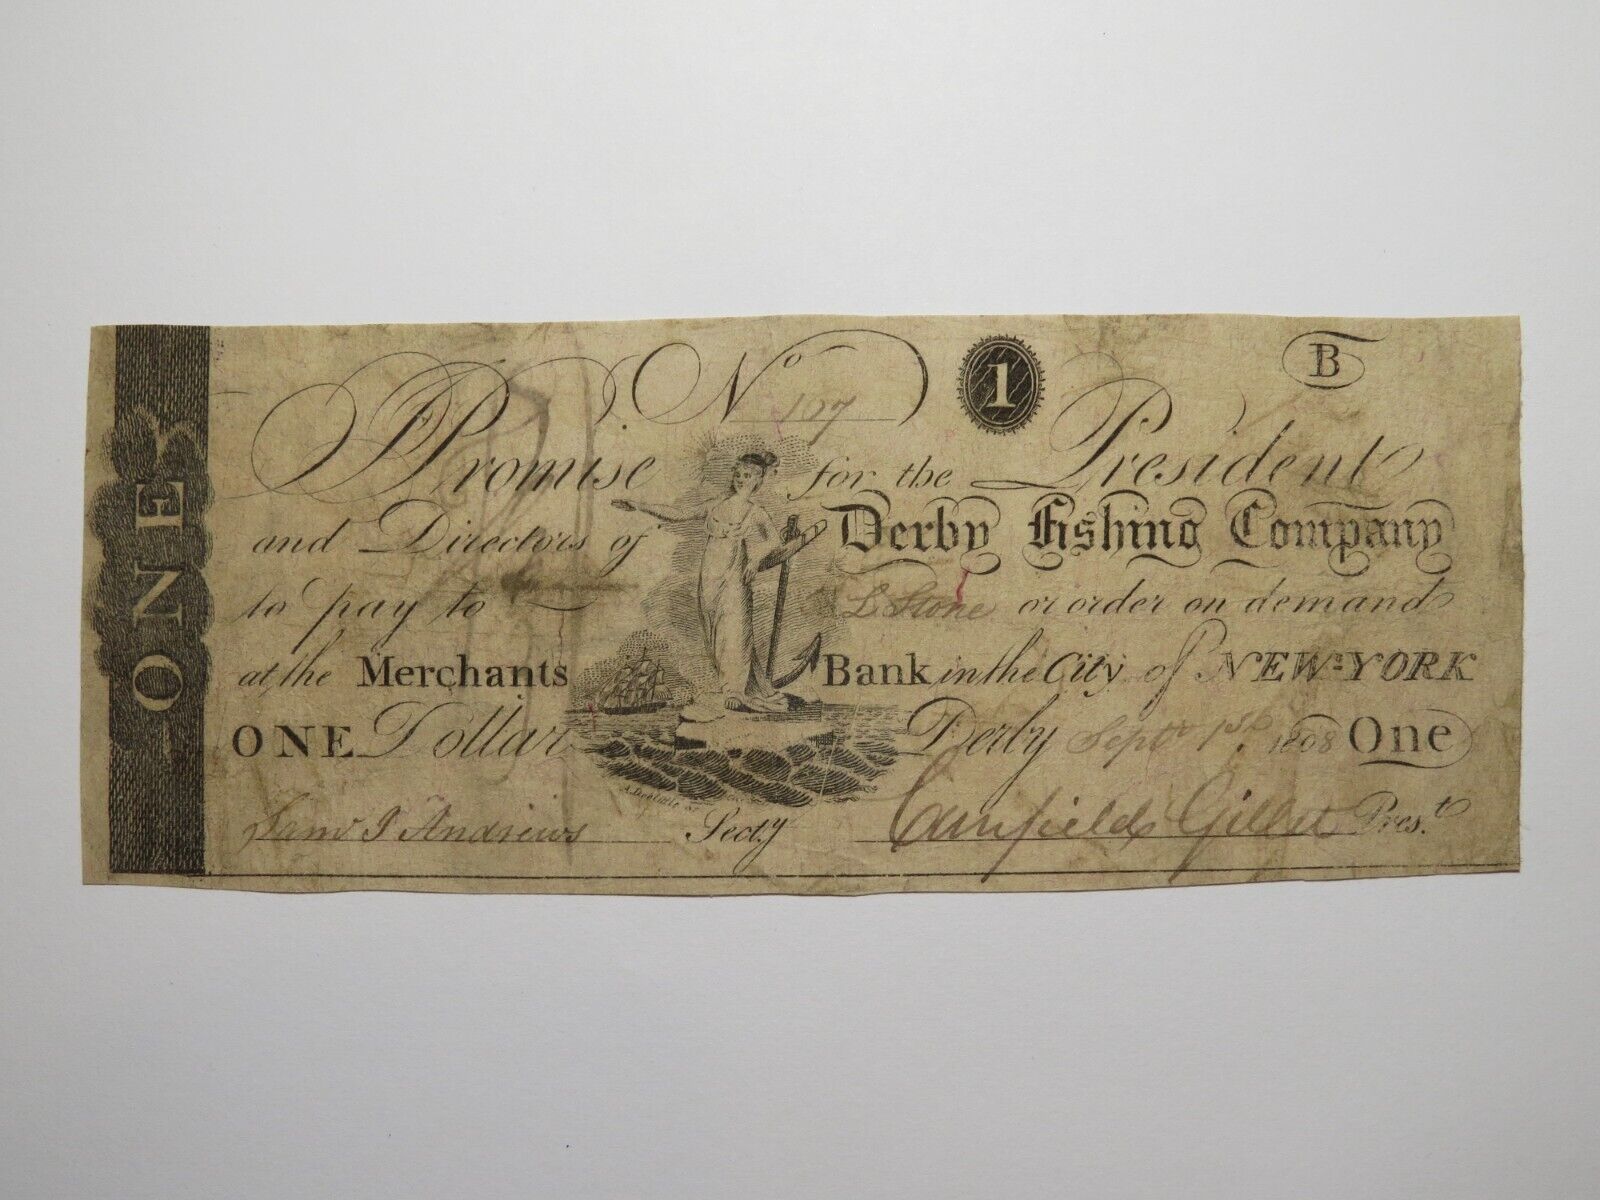 ONE
No 107
1
B
I Promise for the President
and Directors of Derby Fishing Company
to pay to L Stone or order on demand
at the Merchants Bank in the City of NEW-YORK
ONE Dollar Derby Septr 1st 1808 One
A. Doolittle sc
Saml J Andrews Secty Canfield Gillet Prest